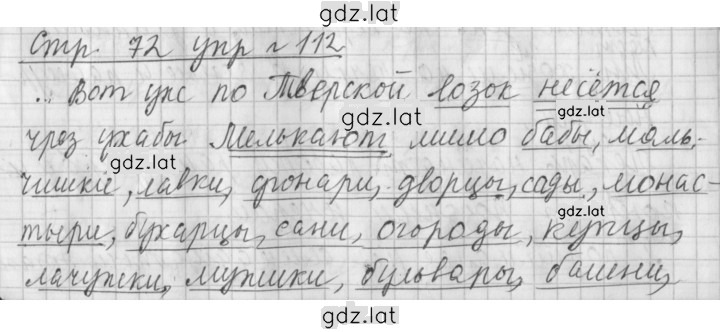 gdz.lat
Стр. 72 упр № 112
gdz.lat
... Вот уж по Тверской возок несётся
gdz.lat gdz.lat
чрез ухабы Мелькают мимо бабы, маль-
gdz.lat
чишкie, лавки, фонари, дворцы, сады, монас-
gdz.lat
тыри, бухарцы, сани, огороды, купцы,
лачужки, мужики, бульвары, башни,
gdz.lat gdz.lat
gdz.lat